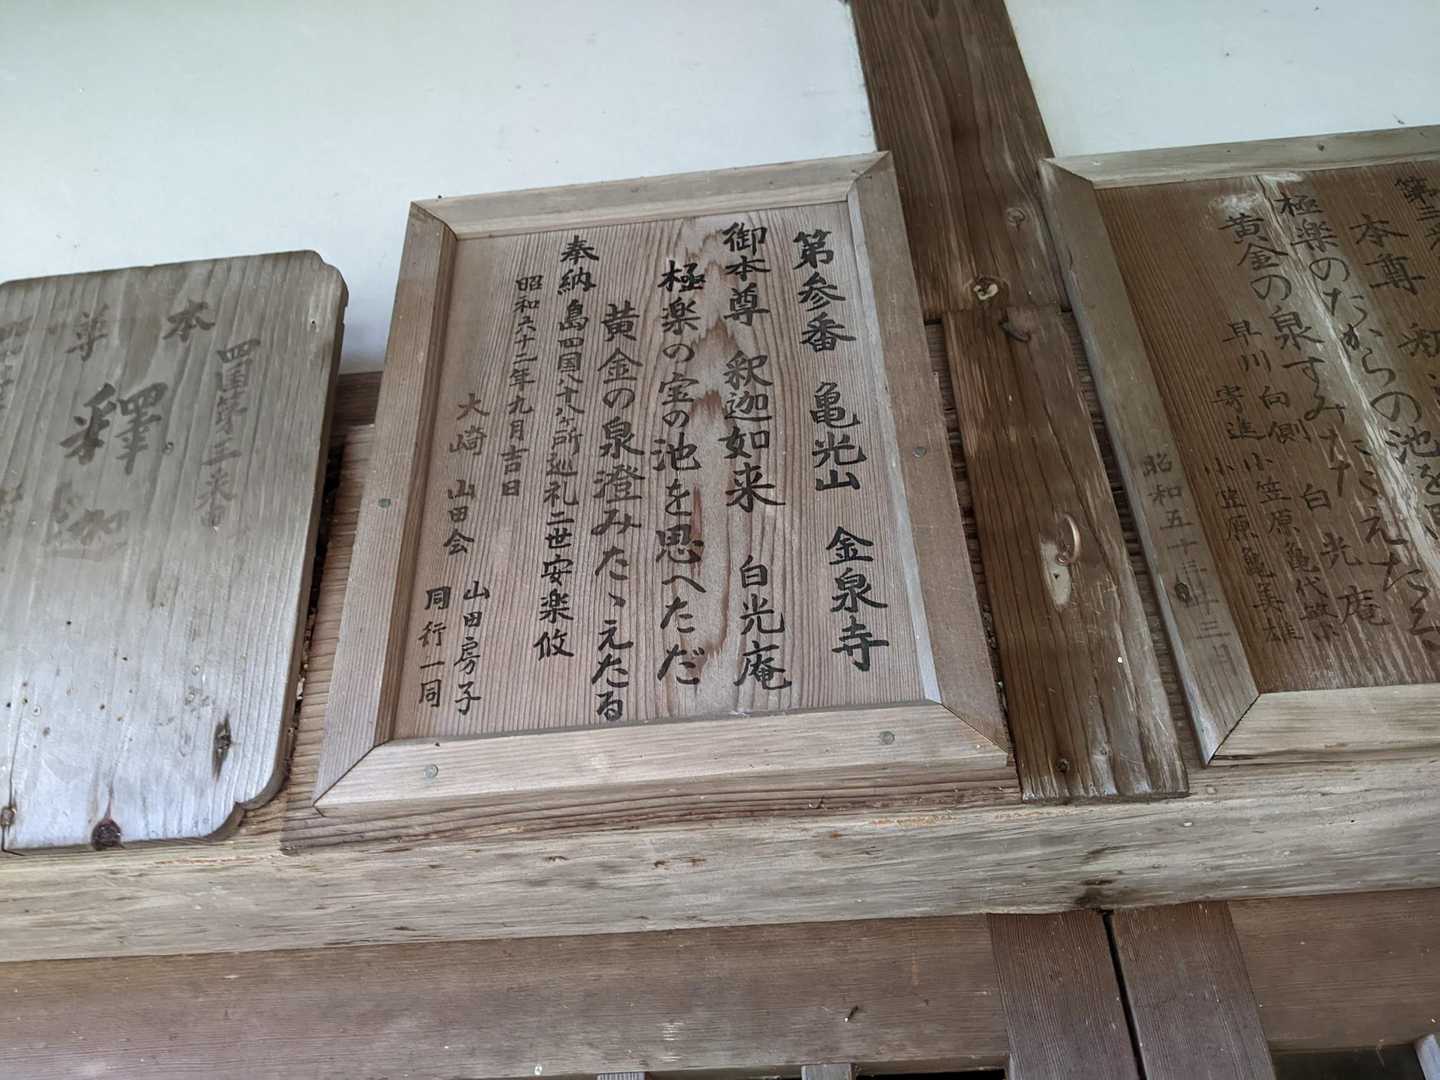 第三番
本尊 釈迦
白光庵
極楽のたからの池を思へただ
黄金の泉すみたたえたる
早川向側 小笠原亀代
寄進 小笠原亀美雄
昭和五十三年三月
第参番 亀光山 金泉寺
御本尊 釈迦如来 白光庵
極楽の宝の池を思へただ
黄金の泉澄みたゝえたる
奉納 島四国八十八ヶ所巡礼二世安楽攸
昭和六十二年九月吉日
大崎 山田会 山田房子
同行一同
四国第三番
本尊
釋迦